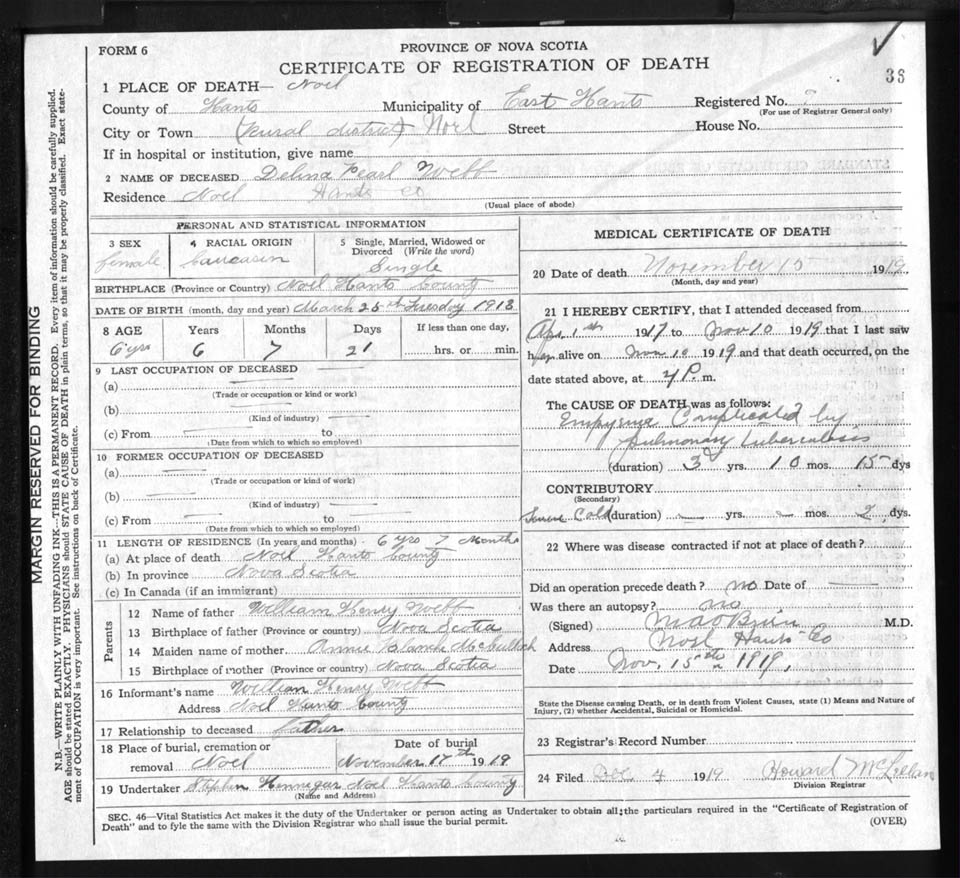 FORM 6
PROVINCE OF NOVA SCOTIA
CERTIFICATE OF REGISTRATION OF DEATH
38
1 PLACE OF DEATH— Noel
County of Hants Municipality of East Hants Registered No. ?
(For use of Registrar General only)
City or Town (Rural district) Noel Street House No.
If in hospital or institution, give name
2 NAME OF DECEASED Pearl Webb
Residence Noel Hants Co
(Usual place of abode)
MARGIN RESERVED FOR BINDING
N.B.—WRITE PLAINLY WITH UNFADING INK—THIS IS A PERMANENT RECORD. Every item of information should be carefully supplied.
AGE should be stated EXACTLY. PHYSICIANS should STATE CAUSE OF DEATH in plain terms, so that it may be properly classified. Exact state-
ment of OCCUPATION is very important. See instructions on back of Certificate.
PERSONAL AND STATISTICAL INFORMATION
3 SEX 4 RACIAL ORIGIN 5 Single, Married, Widowed or
Divorced (Write the word)
female Caucasin Single
BIRTHPLACE (Province or Country) Noel Hants County
DATE OF BIRTH (month, day and year) March 25th Tuesday 1913
8 AGE Years Months Days If less than one day,
6 yrs 6 7 21 hrs. or min.
9 LAST OCCUPATION OF DECEASED
(a)
(Trade or occupation or kind or work)
(b)
(Kind of industry)
(c) From to
(Date from which to which so employed)
10 FORMER OCCUPATION OF DECEASED
(a)
(Trade or occupation or kind of work)
(b)
(Kind of industry)
(c) From to
(Date from which to which so employed)
11 LENGTH OF RESIDENCE (In years and months) 6 yrs 7 Months
(a) At place of death Noel Hants County
(b) In province Nova Scotia
(c) In Canada (if an immigrant)
Parents
12 Name of father William Henry Webb
13 Birthplace of father (Province or country) Nova Scotia
14 Maiden name of mother Annie Blanch McCulloch
15 Birthplace of mother (Province or country) Nova Scotia
16 Informant's name William Henry Webb
Address Noel Hants County
17 Relationship to deceased father
18 Place of burial, cremation or Date of burial
removal Noel November 17th 1919
19 Undertaker Stephen Hennigar Noel Hants County
(Name and Address)
MEDICAL CERTIFICATE OF DEATH
20 Date of death November 15 1919
(Month, day and year)
21 I HEREBY CERTIFY, that I attended deceased from
Apr 1st 1917 to Nov 10 1919 that I last saw
her alive on Nov 10 1919 and that death occurred, on the
date stated above, at 4 P. m.
The CAUSE OF DEATH was as follows:
Empyema Complicated by
pulmonary tuberculosis
(duration) 3 yrs. 10 mos. 15 dys
CONTRIBUTORY
(Secondary)
Severe Cold (duration) yrs. mos. 2 dys.
22 Where was disease contracted if not at place of death?
Did an operation precede death? no Date of
Was there an autopsy? no
(Signed) M.D.
Address Noel Hants Co
Date Nov, 15th 1919,
State the Disease causing Death, or in death from Violent Causes, state (1) Means and Nature of
Injury, (2) whether Accidental, Suicidal or Homicidal.
23 Registrar's Record Number
24 Filed Dec 4 1919 Howard McLellan
Division Registrar
SEC. 46—Vital Statistics Act makes it the duty of the Undertaker or person acting as Undertaker to obtain all the particulars required in the "Certificate of Registration of
Death" and to fyle the same with the Division Registrar who shall issue the burial permit.
(OVER)